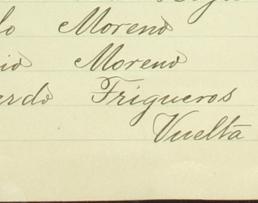 lo Moreno
io Moreno
ardo Trigueros
Vuelta